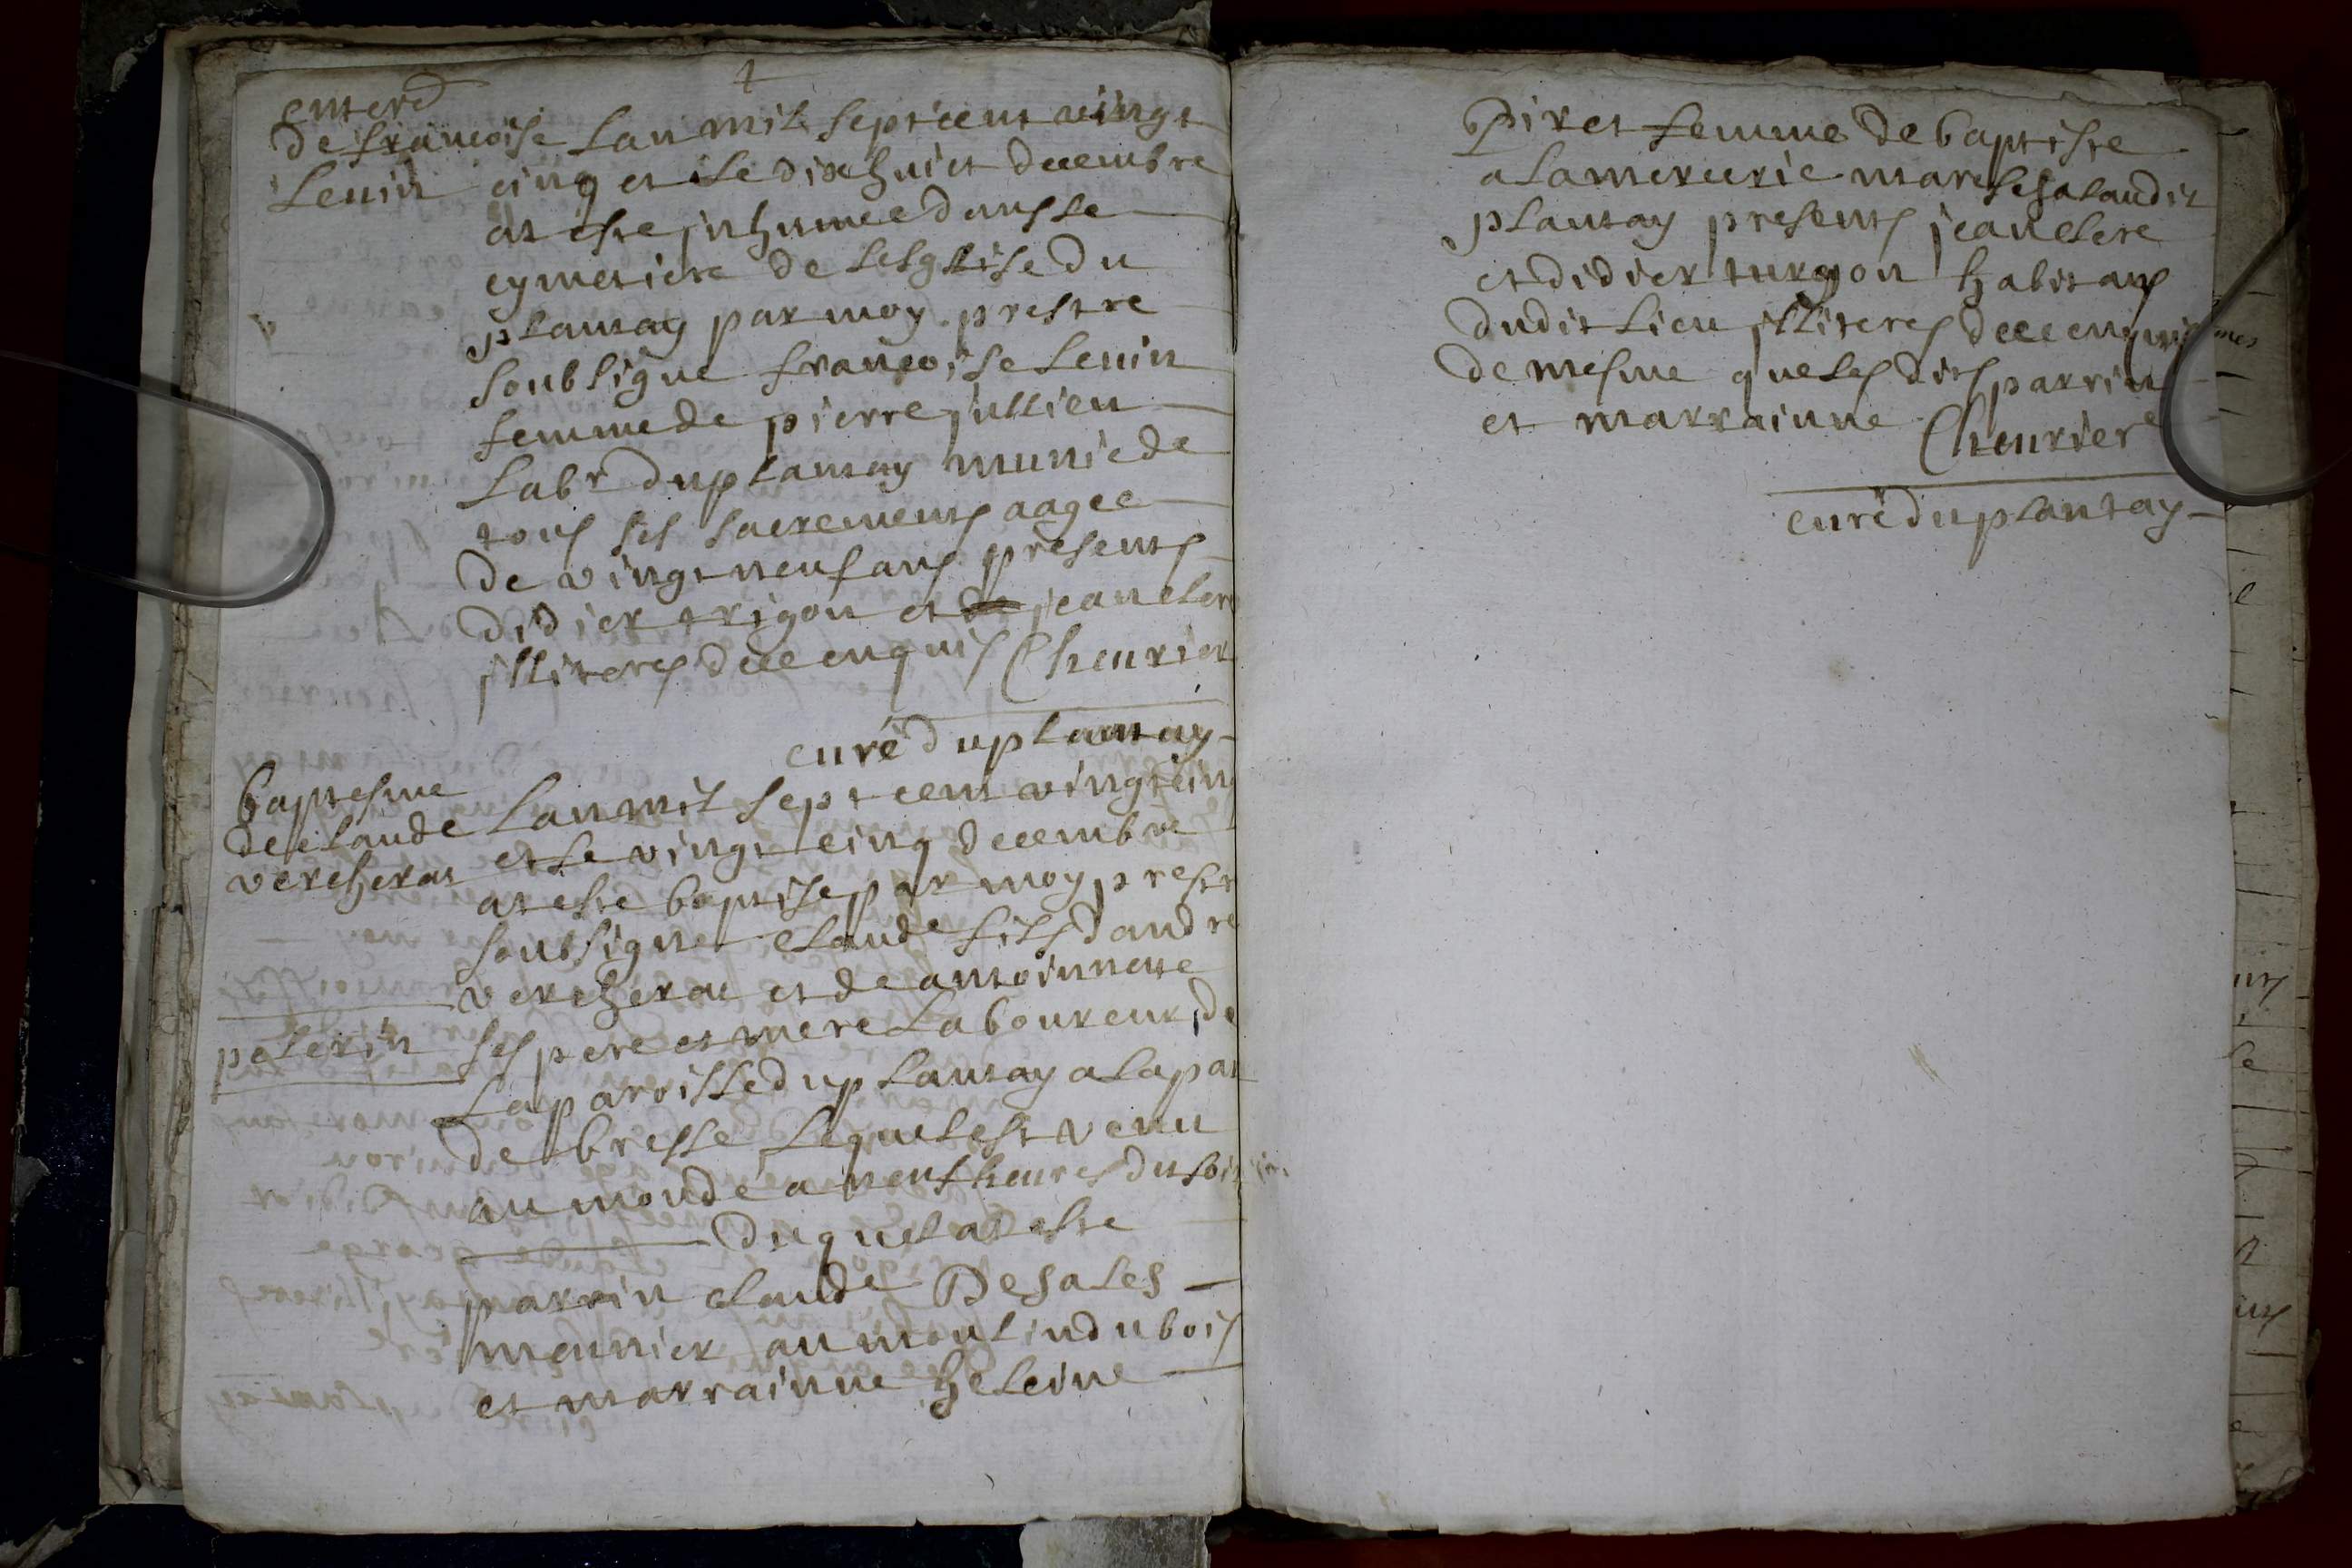 enterd
de francoise
Lenin
Lan mil sept cent vingt
cinq et le dix huict decembre
at este inhumee dans le
cymetiere de lesglise du
plantay par moy prestre
soubsigne francoise Lenin
femme de pierre jullien
Labr du plantay munie de
tous ses sacrements aagee
de vingt neuf ans presents
didier trigon et jean clere
illiteres dece enquis Cheurier
curé du plantay
baptesme
de claude
vercherat
Lan mil sept cent vingt cinq
et le vingt cinq decembre
at este baptise par moy prestre
soubsigne claude fils dandre
vercherat et de antoinnette
pelerin ses pere et mere Laboureur de
La paroisse du plantay a la part
de bresse lequel est venu
au monde a neuf heures du soir
duquel at este
parrin claude Desales
meunier au moulin du bois
et marrainne heleine
Piret femme de baptiste
a la mercerie mareschal audit
plantay presents jean clere
et didier turgon habitans
dudit lieu illiteres dece enquis
de mesme que les dits parrin
et marrainne Cheurier
curé du plantay